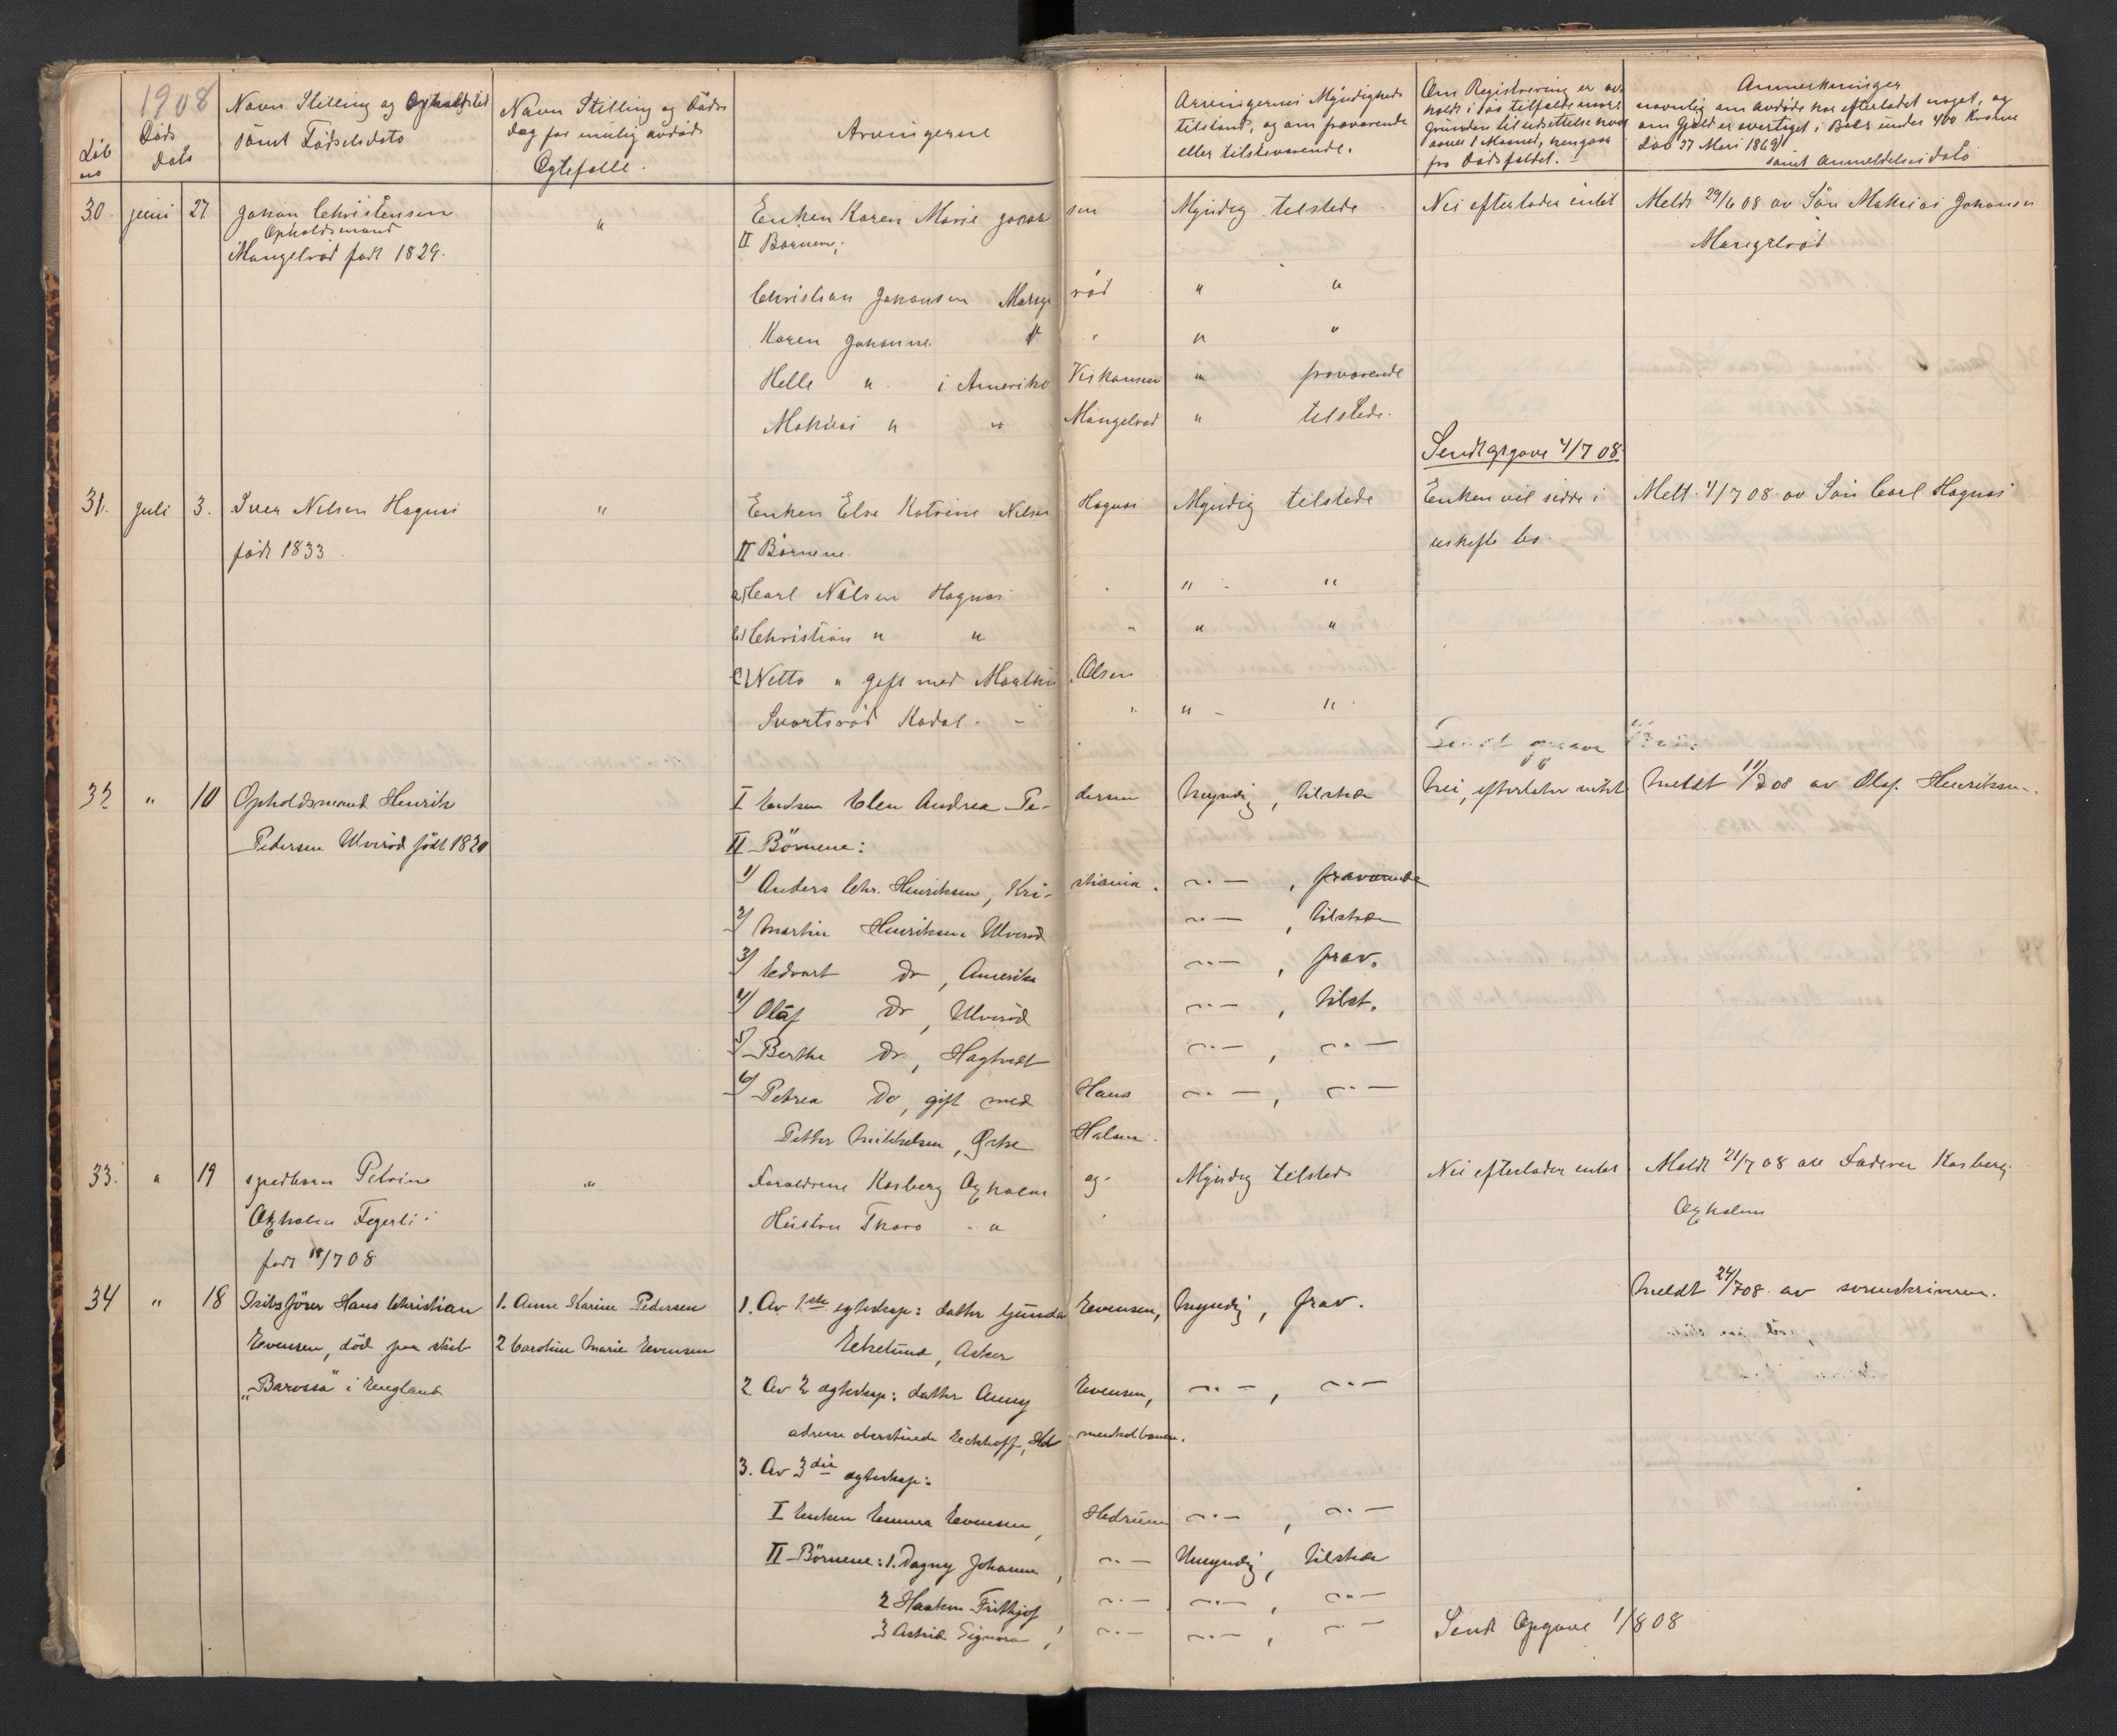 1908
Løb no
Døds Dato
Navn Stilling og Opholdsted
samt Fødselsdato
Navn Stilling og Døds
dag for mulig avdød
Egtefelle.
Arvingerne
Arvingernes Myndigheds
tilstand, og om fraværende
eller tilstedeværende.
Om Registrering er av-
holdt i saa tilfælde
Grunden til udsættelse
1 Maaned, hengaar
fra Dødsfaldet.
Anmerkninger
navnlig om avdøde har efterladt noget, og
om Gjæld er overtaget i Boer under 400 Kroner
Lov 27 Mars 1869
samt Anmeldelsesdato
30. juni 27 Johan Christensen " Enken Karen Marie Jacobsen Myndig tilstede Nei efterlader intet Meldt 29/6 08 av Søn Mathias Johansen
Opholdsmand II Børnene; Mangelrød
Mangelrød født 1829.
Christian Johansen Mangelrød " "
Karen Johanne " " " "
Helle " i Amerika Viskonsin " fraværende
Mathias " " Mangelrød " tilstede.
Sendt opgave 4/7 08.
31. juli 3. Iver Nilsen Hagnæs " Enken Else Katrine Nilsen Hagnæs Myndig tilstede Enken vil sidde i Meldt 4/7 08 av Søn Carl Hagnæs
født 1833 II Børnene uskifte bo.
a) Carl Nilsen Hagnæs " "
b) Christian " " " " "
c) Netta " gift med Martin Olsen
Svartsrød Kodal " " "
Sendt opgave
32 " 10 Opholdsmand Henrik I Enken Elen Andrea Pedersen Myndig, tilstede Nei, efterlater intet Meldt 11/7 08 av Olaf Henriksen.
Pedersen Ulverød født 1820 II Børnene:
1/ Anders Chr. Henriksen, Kristiania. -"- , fraværende
2/ Martin Henriksen Ulverød -"- , tilstede
3/ Edvart Do , Amerika -"- , frav.
4/ Olaf Do , Ulverød -"- , tilst.
5/ Berthe Do , Hagtvedt -"- , -"-
6/ Petrea Do , gift med Hans -"- , -"-
Petter Mikkelsen, Østre Halsen.
33. " 19 spedbarn Petrine " Foreldrene Karsberg Ogholm og Myndig tilstede Nei efterlader intet Meldt 21/7 08 av Faderen Karsberg
Ogholm Fegerli Hustru Thora " Ogholm
født 18/7 08
34 " 18 Skibsfører Hans Christian 1. Anne Karine Pedersen 1. Av 1ste egteskap: datter Gunda Evensen, Myndig, frav. Meldt 24/7 08 av sorenskriveren.
Evensen, død paa skib 2 Caroline Marie Evensen Ekelund, Asker
"Barossa" i England 2 Av 2 egteskap: datter Anny Evensen, -"- , -"-
adresse oberstinde Eckhoff, Holmenkolbanen.
3. Av 3die egteskap:
I Enken Emma Evensen, Hedrum -"- , -"-
II Børnene: 1. Dagny Johanne, -"- Umyndig, tilstede
2 Haakon Frithjof -"- -"- , -"-
3 Astrid Signora, -"- -"- , -"- Sendt Opgave 1/8 08